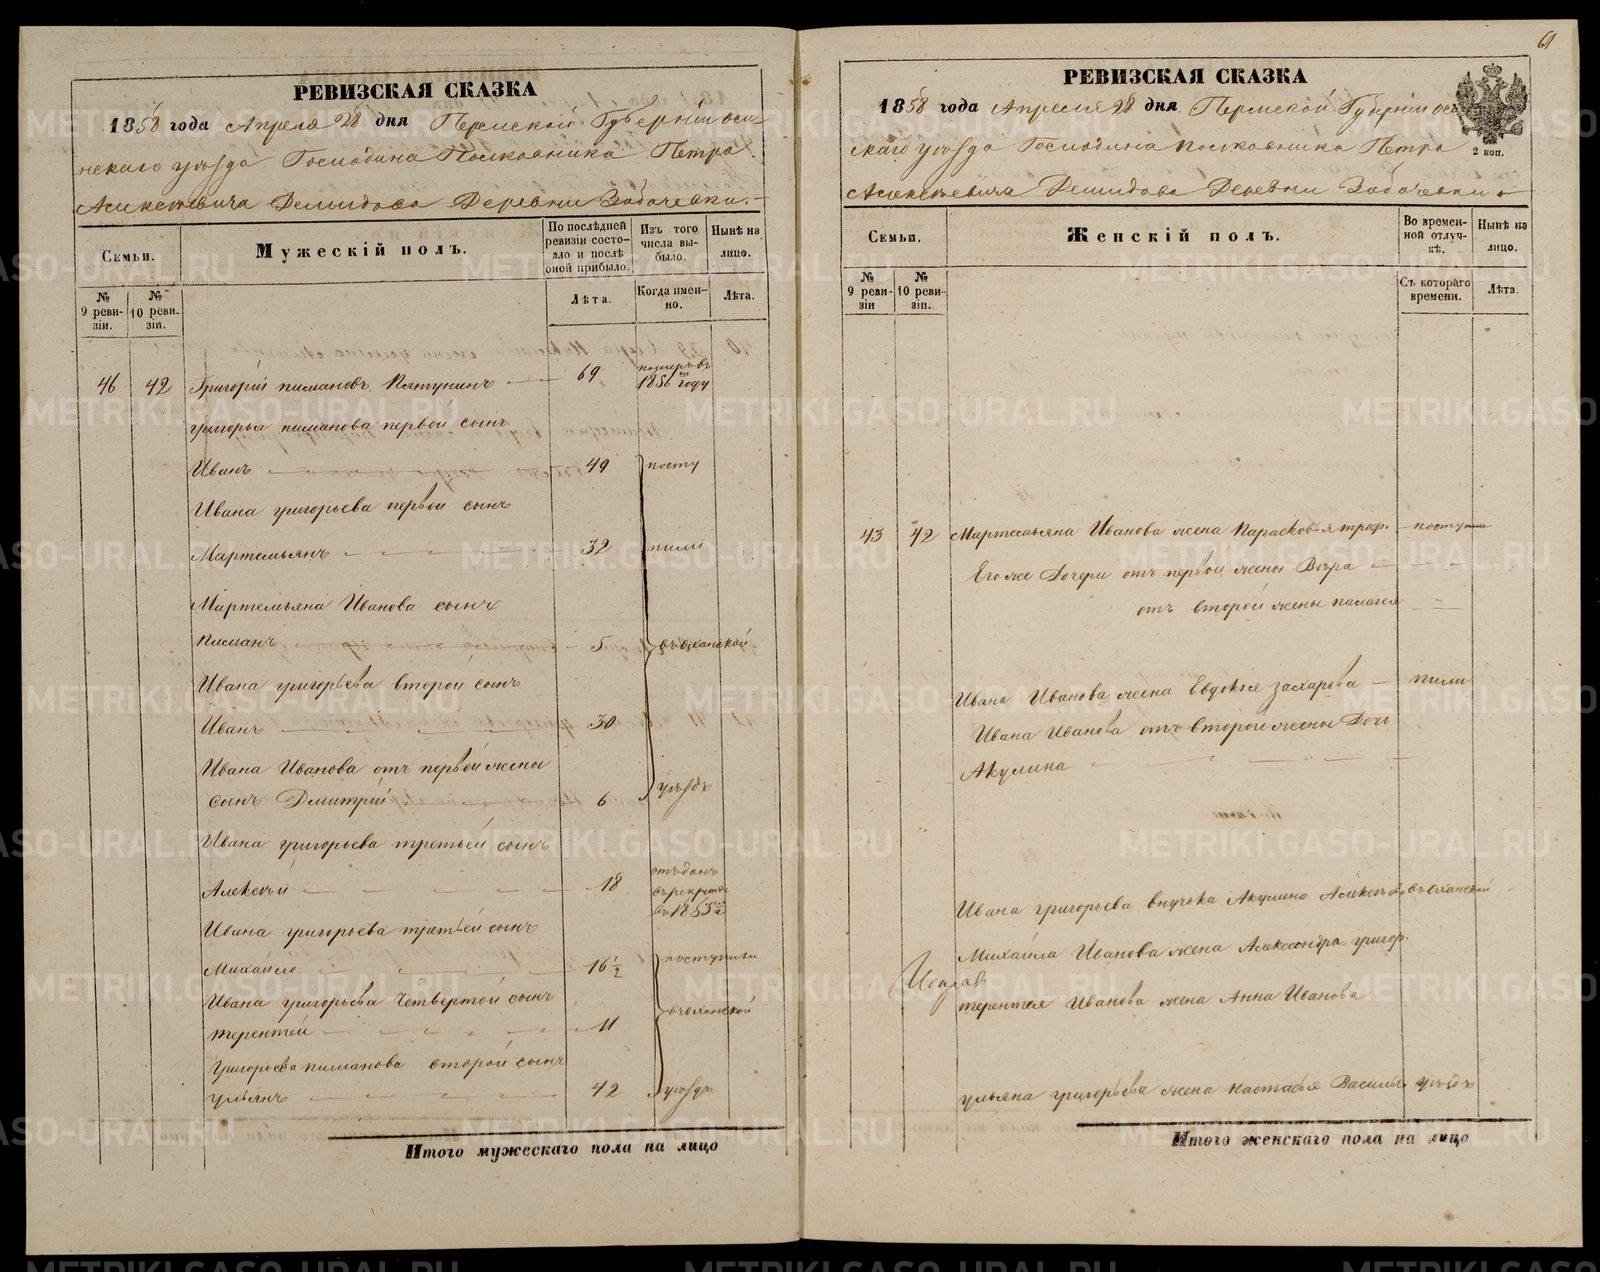 РЕВИЗСКАЯ СКАЗКА
1858 года Апреля 28 дня Пермской Губерніи оси
нскаго уѣзда Господина Полковника Петра
Алексѣевича Демидова Деревни
Семьи.
Мужескій полъ.
По послѣдней ревизіи состояло и послѣ оной прибыло.
Изъ того числа выбыло.
Нынѣ на лицо.
№ 9 ревизіи.
№ 10 ревизіи.
Лѣта.
Когда именно.
Лѣта.
46 42 Григорій пимановъ 69 померъ въ 1856 году
григорья пиманова первой сынъ
Иванъ 49 посту
Ивана григорьева первой сынъ
Мартемьянъ 32 пили
Мартемьяна Иванова сынъ
Пиманъ 5 въ оханской
Ивана григорьева второй сынъ
Иванъ 30
Ивана Иванова отъ первой жены
сынъ Дмитрій 6 уѣздъ
Ивана григорьева третьей сынъ
Алексѣй 18 отъданъ въ рекруты въ 1853
Ивана григорьева третьей сынъ
Михайло 16 1/2 поступили
Ивана григорьева четвертой сынъ
терентей 11 въ оханской
Григорьева пиманова второй сынъ
ульянъ 42 уѣздъ
Итого мужескаго пола на лицо
61
РЕВИЗСКАЯ СКАЗКА
2 коп.
1858 года Апреля 28 дня Пермской Губерніи оси
скаго уѣзда Господина полковника Петра
Алексѣевича Демидова Деревни
Семьи.
Женскій полъ.
Во временной отлучкѣ.
Нынѣ на лицо.
№ 9 ревизіи
№ 10 ревизіи.
Съ котораго времени.
Лѣта.
43 42 Мартемьяна Иванова жена Парасковья троф. поступили
Его же Дочери отъ первой жены Вѣра
отъ второй жены палагея
Ивана Иванова жена Евдокія захарова пили
Ивана Иванова отъ второй жены Дочь
Акулина
Ивана григорьева внучька Акулина Алексѣева въ оханской
Михаила Иванова жена Александра григор.
терентея Иванова жена Анна Иванова
ульяна григорьева жена настасья Василье уѣздъ
Итого женскаго пола на лицо
METRIKI.GASO-URAL.RU